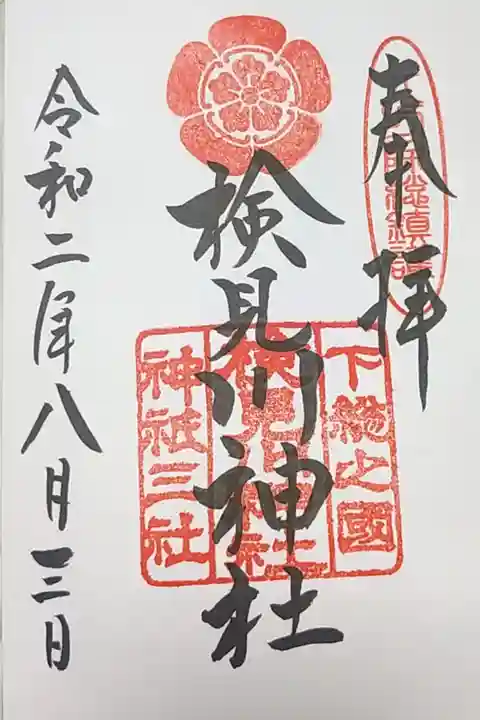 奉拝
検見川神社
下総之国
検見川神社
神祇三社
令和二年八月三日